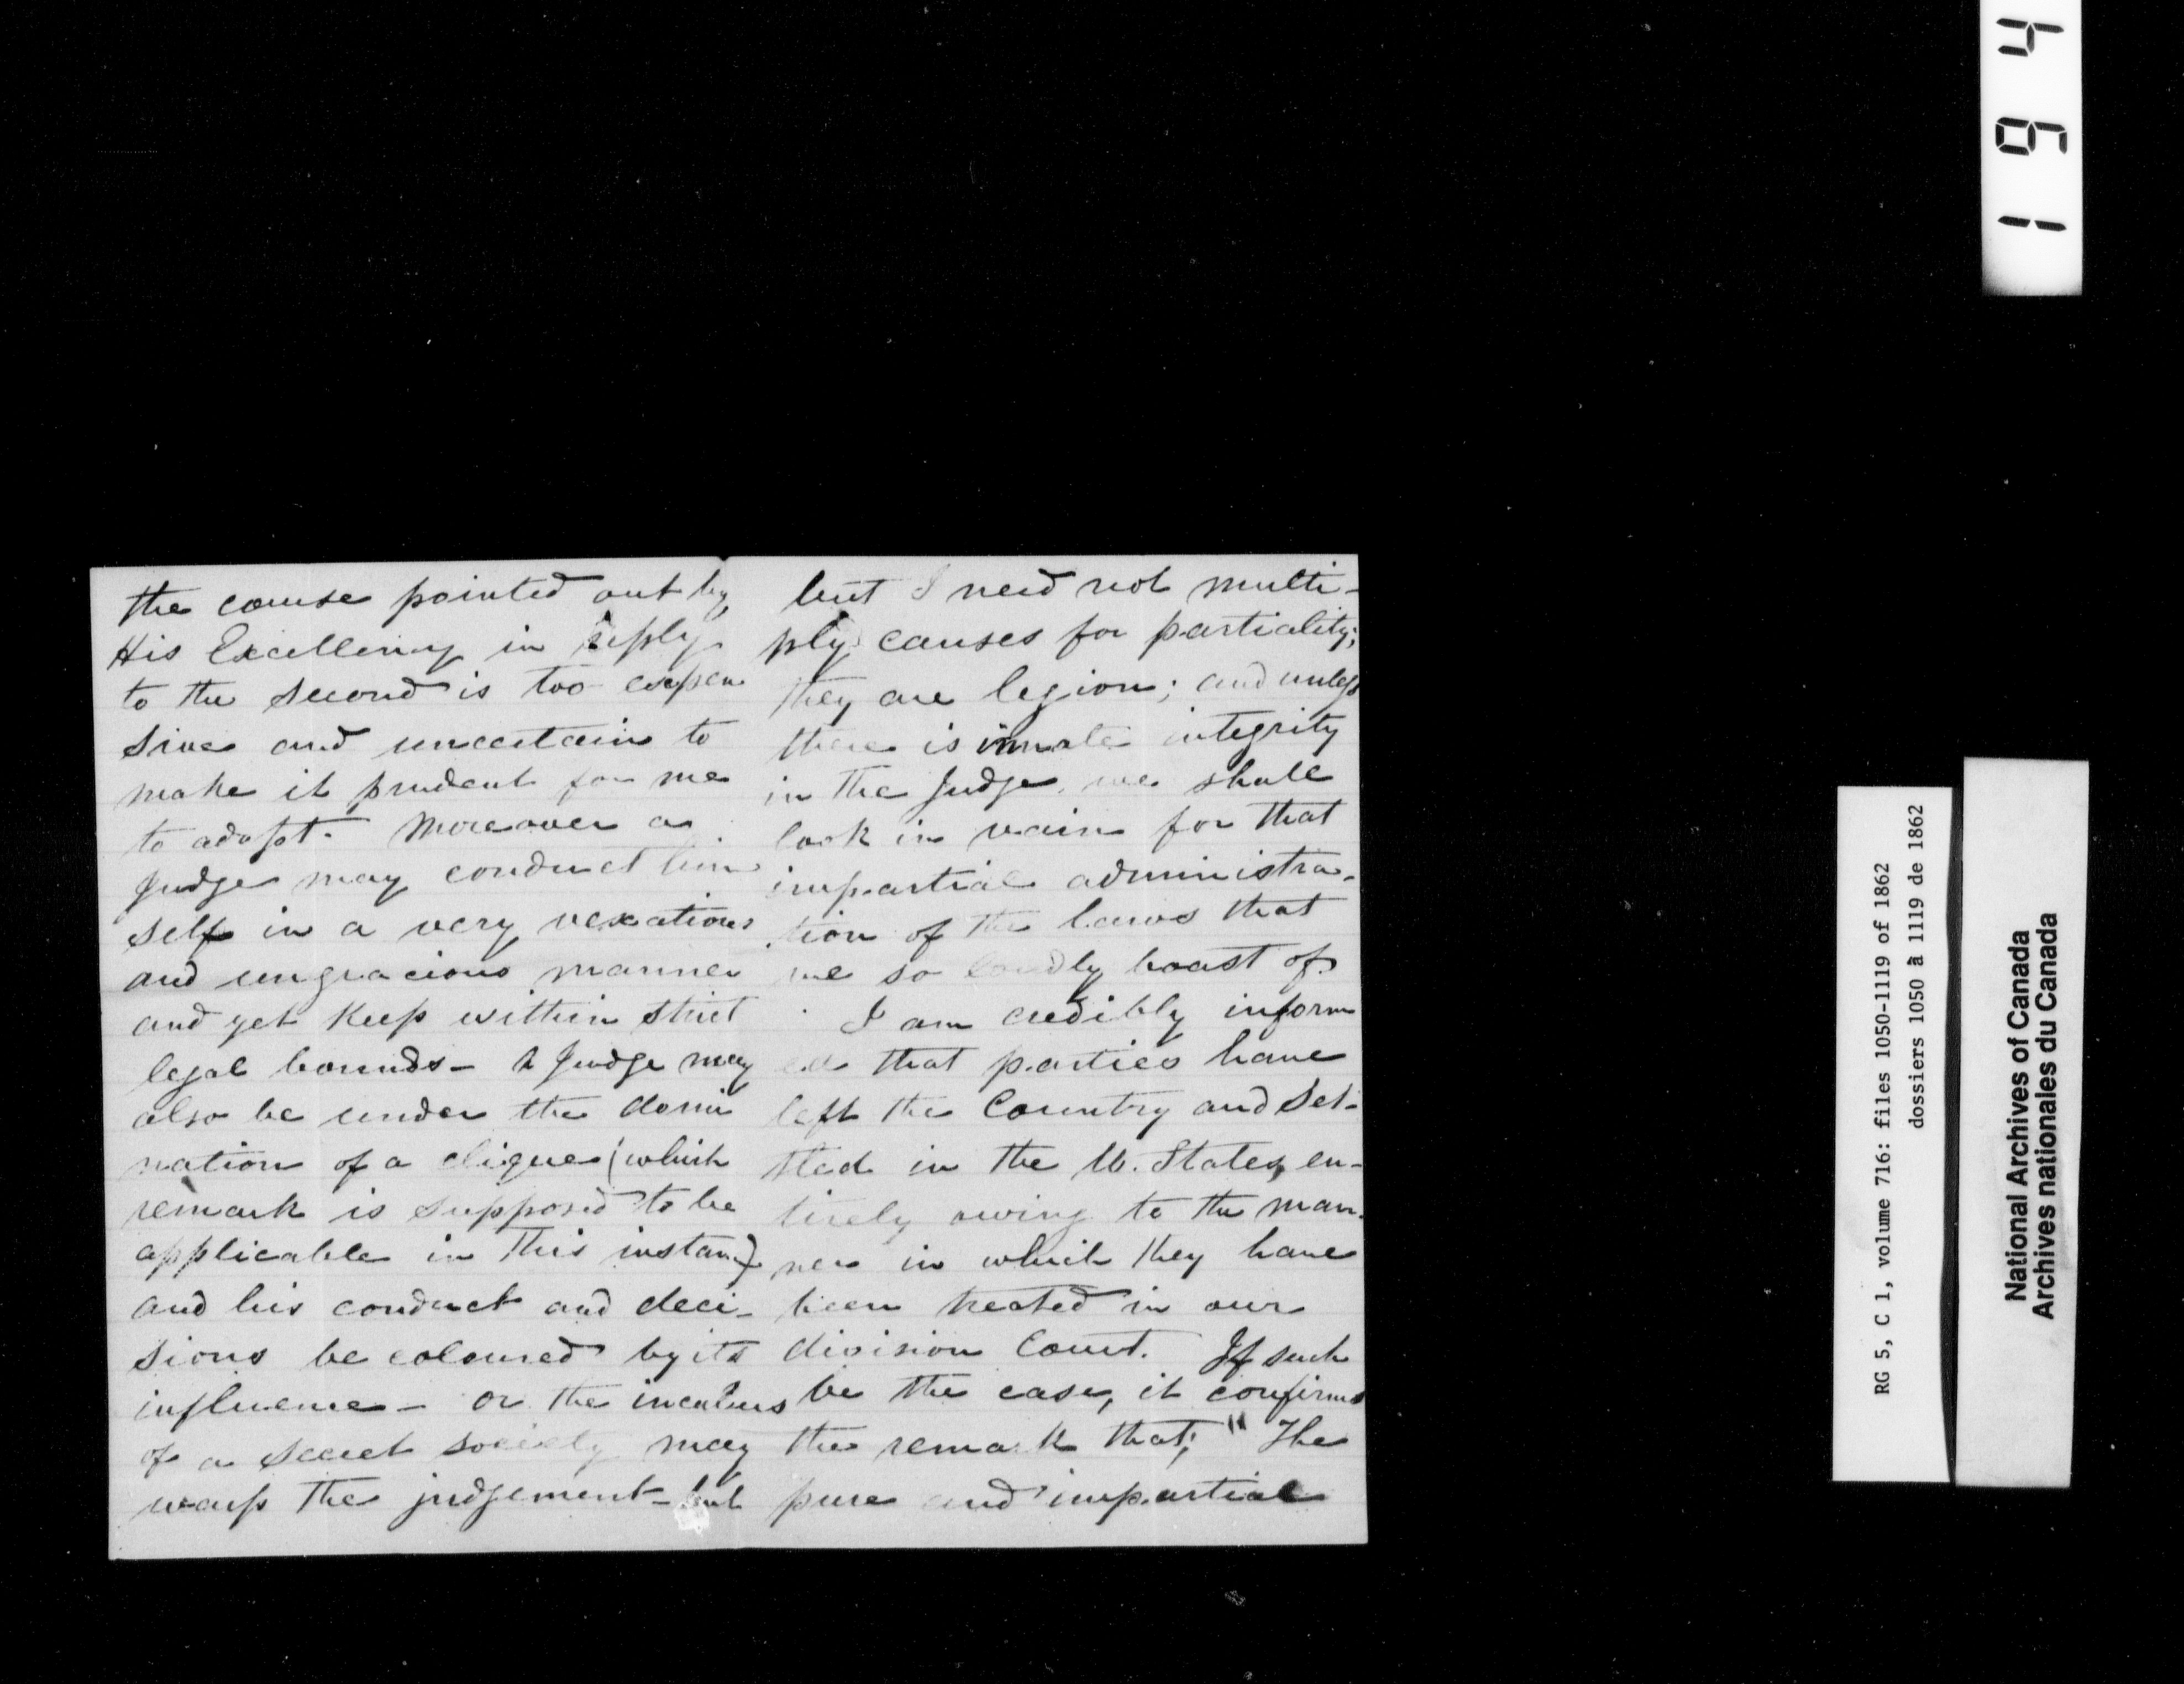 the course pointed out by
His Excellency in reply
to the second is too expen
sive and uncertain to
make it prudent for me
to adopt. Moreover a
Judge may conduct him
self in a very vexatious
and ungracious manner
and yet keep within strict
legal bounds - A Judge may
also be under the domi
nation of a clique (which
remark is supposed to be
applicable in this instance)
and his conduct and deci-
sions be coloured by its
influence - or the incubus
of a secret society may
warp the judgement - but
but I need not multi-
ply causes for partiality;
they are legion; and unless
there is innate integrity
in the Judge, we shall
look in vain for that
impartial administra-
tion of the laws that
we so loudly boast of.
I am credibly inform
ed that parties have
left the Country and set-
tled in the U. States, en-
tirely owing to the man-
ner in which they have
been treated in our
division Court. If such
be the case, it confirms
the remark that; "The
pure and impartial
1194
RG 5, C 1, volume 716: files 1050-1119 of 1862
dossiers 1050 à 1119 de 1862
National Archives of Canada
Archives nationales du Canada